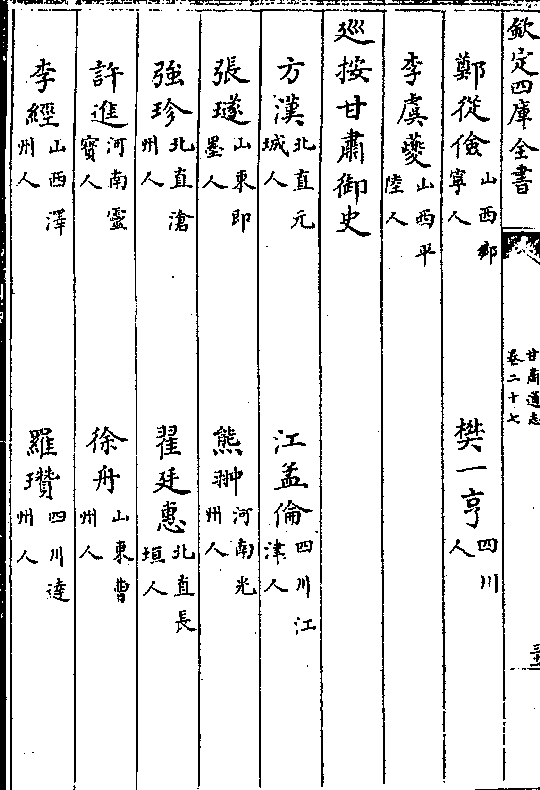 欽定四庫全書
甘肅通志
卷二十七
鄭從儉山西鄉寧人 樊一亨四川人
李虞夔山西平陸人
巡按甘肅御史
方漢北直元城人 江孟倫四川江津人
張璲山東即墨人 熊翀河南光州人
強珍北直滄州人 翟廷蕙北直長垣人
許進河南靈寶人 徐舟山東曹州人
李經山西澤州人 羅瓚四川達州人